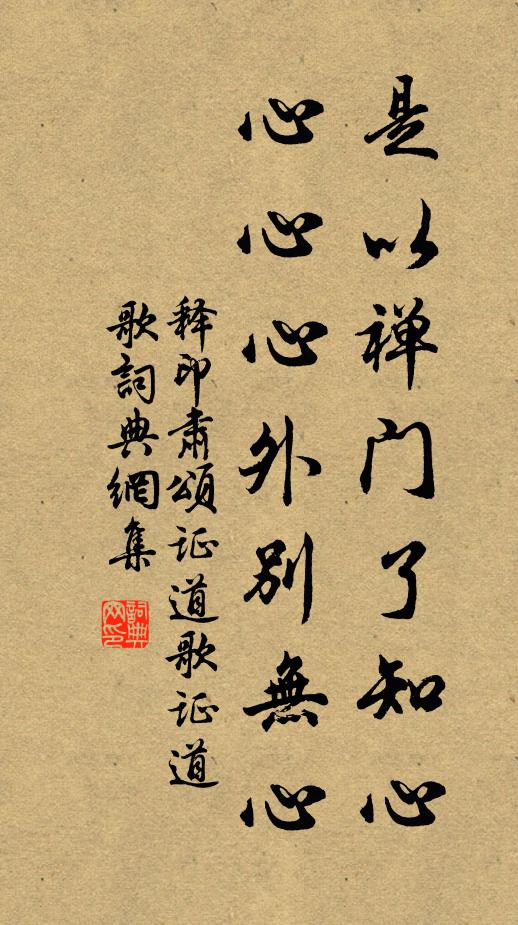 是以禅门了知心
心心心外别無心
释印肃颂证道歌证道
歌詞典網集
詞典网印